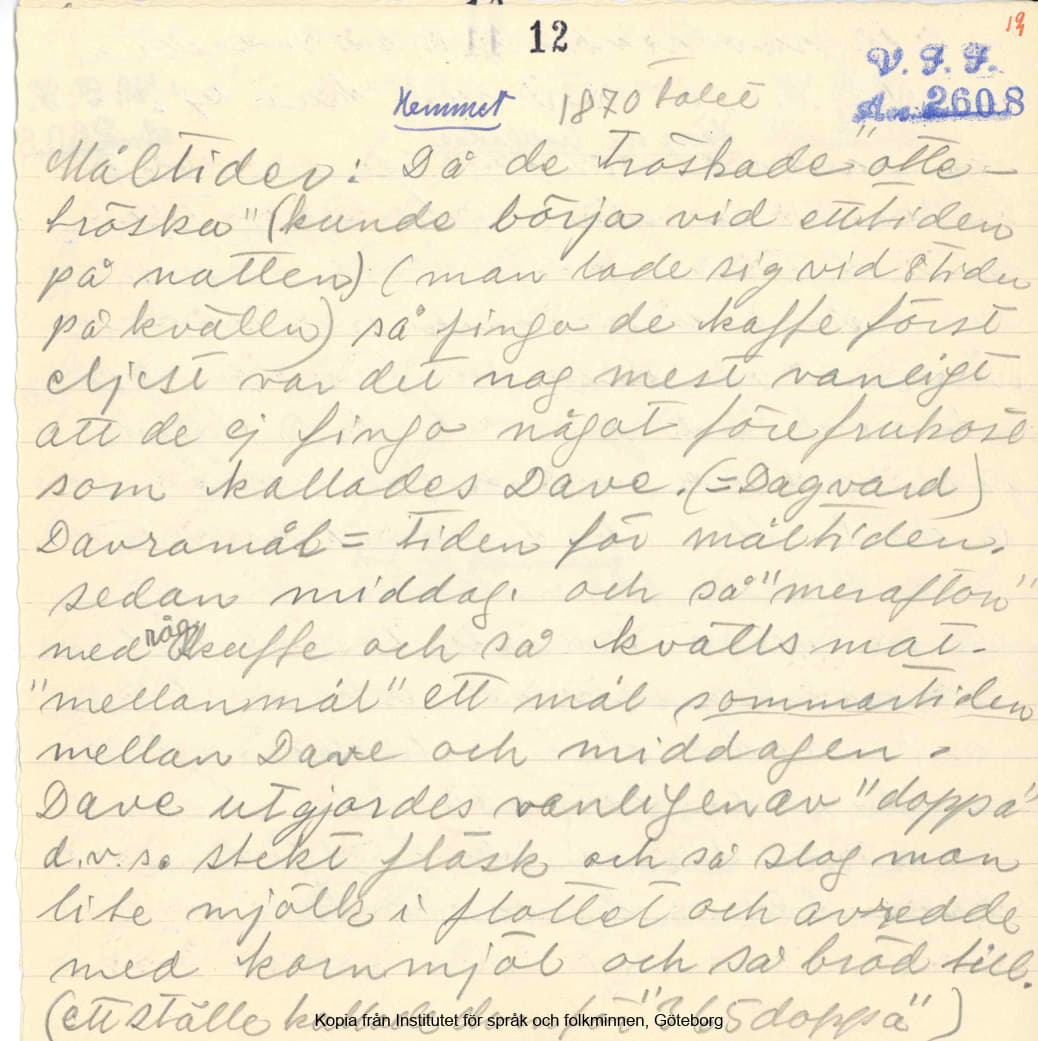 12
19
V. F. F.
Acc. 2608
Hemmet 1870 talet
Måltider: Då de tröskade "otte-
tröska" (kunde börja vid etttiden
på natten) (man lade sig vid 8tiden
på kvällen) så fingo de kaffe först
eljest var det nog mest vanligt
att de ej fingo något före frukost
som kallades Dave. (=Dagvard)
Davramål = tiden för måltiden.
sedan middag. och så "merafton"
med råg kaffe och så kvällsmat.
"mellanmål" ett mål sommartiden
mellan Dave och middagen.
Dave utgjordes vanligen av "doppa"
d.v.s. stekt fläsk och så slog man
lite mjölk i flottet och avredde
med kornmjöl och så bröd till.
(ett ställe kallade 365 doppa")
Kopia från Institutet för språk och folkminnen, Göteborg